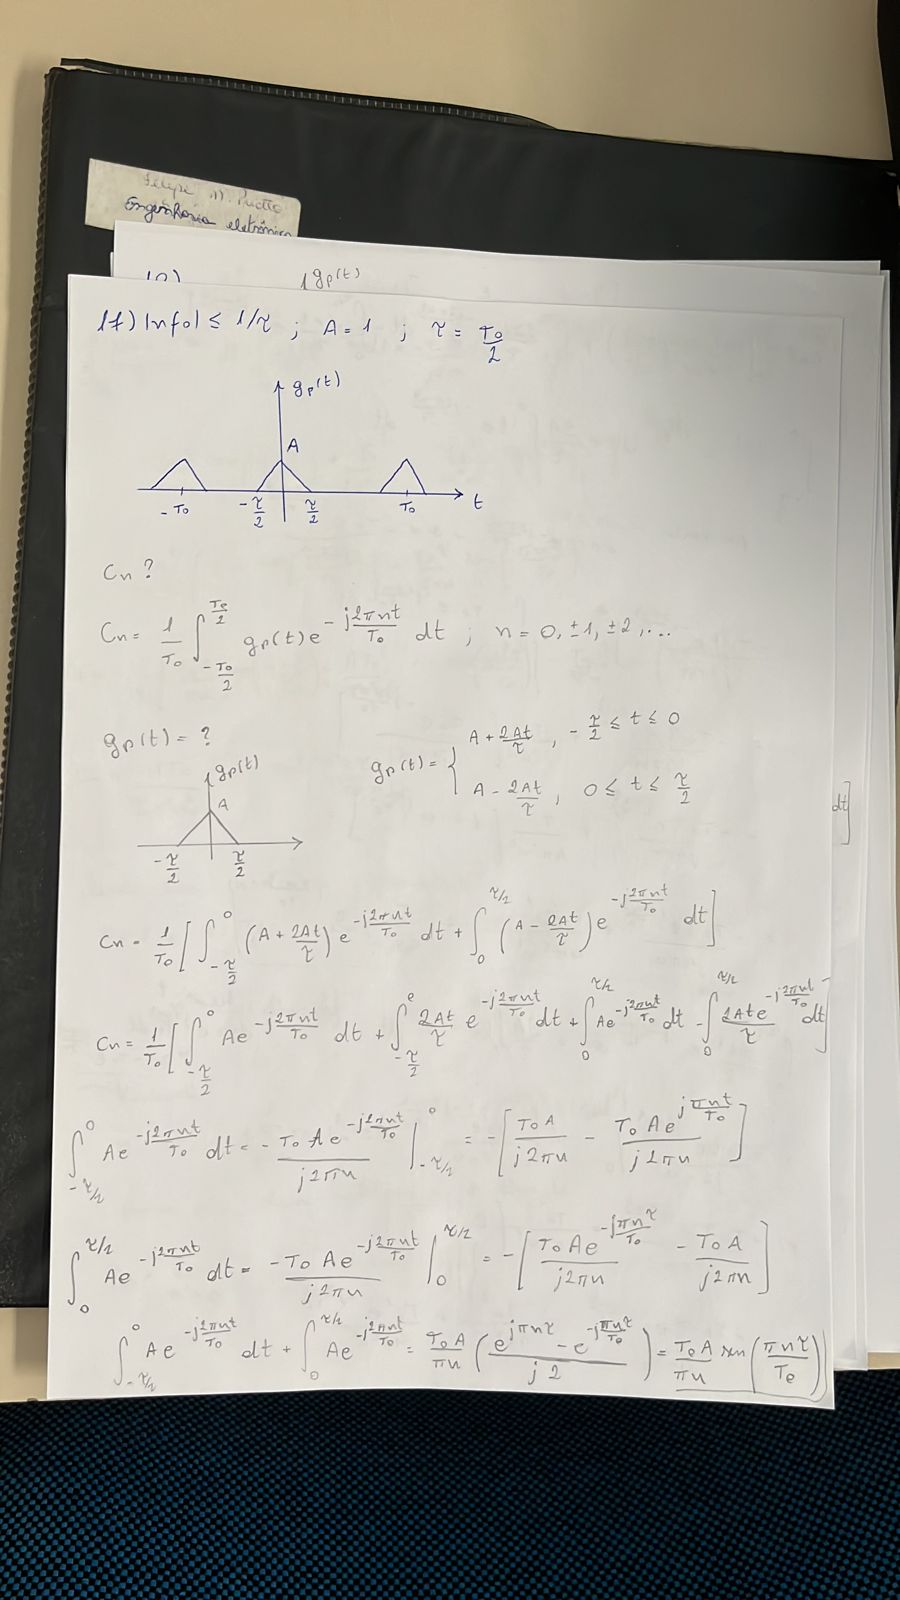 Engenharia eletrônica
10) gp(t)
17) |nfo| ≤ 1/τ ; A = 1 ; τ = To/2
gp(t)
A
-To -τ/2 τ/2 To t
Cn ?
Cn = 1/To ∫_{-To/2}^{To/2} gp(t) e^{-j2πnt/To} dt ; n = 0, ±1, ±2, ...
gp(t) = ?
gp(t) = { A + 2At/τ , -τ/2 ≤ t ≤ 0
A - 2At/τ , 0 ≤ t ≤ τ/2
gp(t)
A
-τ/2 τ/2
dt]
Cn = 1/To [ ∫_{-τ/2}^{0} (A + 2At/τ) e^{-j2πnt/To} dt + ∫_{0}^{τ/2} (A - 2At/τ) e^{-j2πnt/To} dt ]
Cn = 1/To [ ∫_{-τ/2}^{0} Ae^{-j2πnt/To} dt + ∫_{-τ/2}^{0} 2At/τ e^{-j2πnt/To} dt + ∫_{0}^{τ/2} Ae^{-j2πnt/To} dt - ∫_{0}^{τ/2} 2Ate^{-j2πnt/To}/τ dt ]
∫_{-τ/2}^{0} Ae^{-j2πnt/To} dt = - To Ae^{-j2πnt/To}/j2πn |_{-τ/2}^{0} = -[ ToA/j2πn - To Ae^{jπnt/To}/j2πn ]
∫_{0}^{τ/2} Ae^{-j2πnt/To} dt = -To Ae^{-j2πnt/To}/j2πn |_{0}^{τ/2} = -[ To Ae^{-jπnτ/To}/j2πn - ToA/j2πn ]
∫_{-τ/2}^{0} Ae^{-j2πnt/To} dt + ∫_{0}^{τ/2} Ae^{-j2πnt/To} = ToA/πn ( e^{jπnτ} - e^{-jπnτ/To} / j2 ) = ToA/πn sen(πnτ/To)